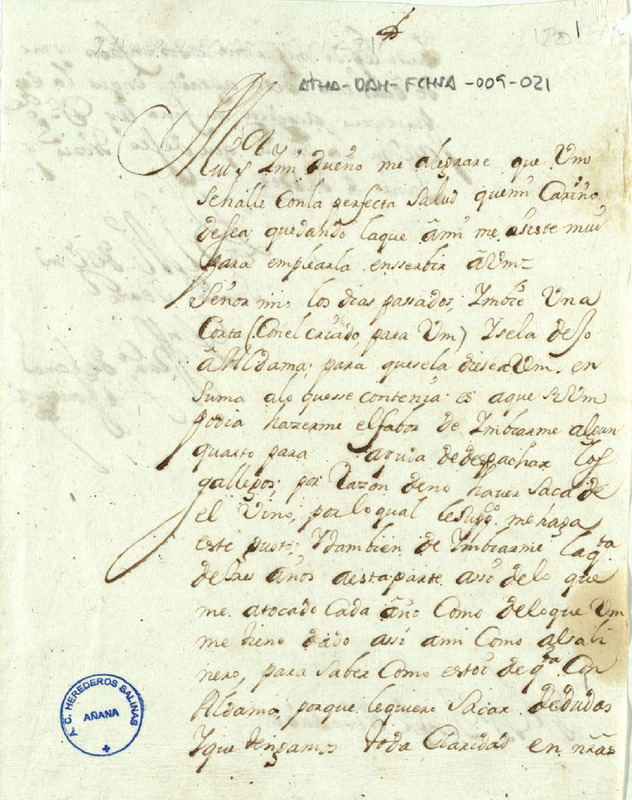 1
ATHA-DAH-FCHSA-009-021
Muy Sr mi dueño me alegrare que Vm
se halle Con la perfecta Salud que mi Cariño
desea quedando la que â mi me asiste mui
para emplearla en sserbir â Vm=
Señor mio los dias passados, Ymbie Una
Carta (Con el criado, para Vm) Y se la dejo
â Aldama, para que se la diese a Vm. en
Suma a lo que sse contenia es a que si Vm
podia hazerme el fabor de Ymbiarme algun
quarto para despachar los
gallegos, por Razon de no haver Saca de
el Vino, por lo qual le supco. me haga
este gusto, Y tambien de Ymbiarme la qta
de los años a esta parte assi de lo que
me a tocado Cada año Como de lo que Vm
me tiene dado assi a mi Como al sali
nero, para saber Como estoi de qta Con
Aldama, porque le quiero Sacar de dudas
Y que tengamos toda Claridad en nras
A. C. HEREDEROS SALINAS
AÑANA